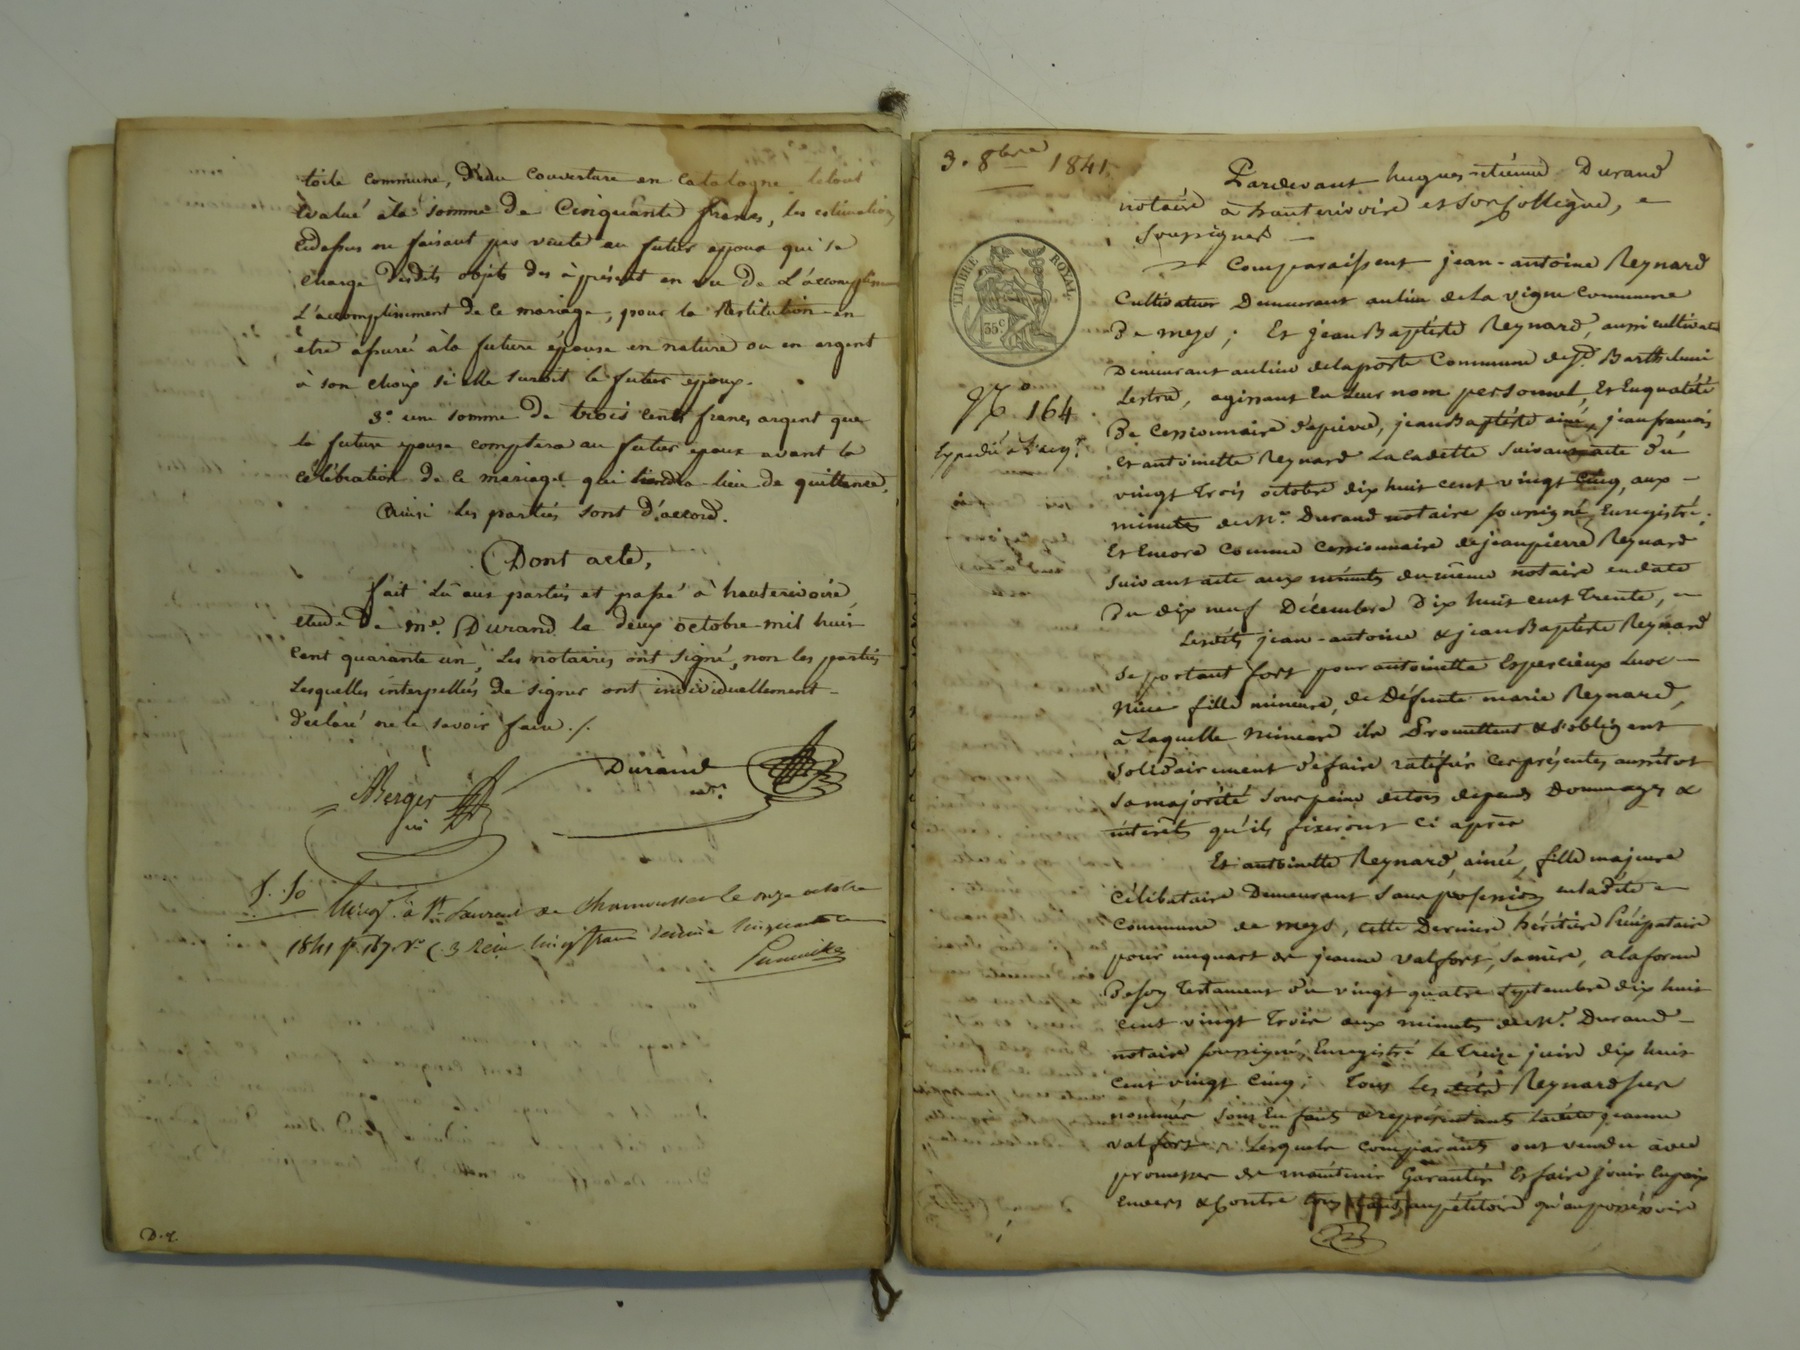 toile commune, & une couverture en catalogne letout
évalué à la somme de Cinquante francs, les estimations
cidessus ne faisant pas vente au futur époux qui se
charge desdits objets dès à présent en vu de L'accomplisse
L'accomplissement de ce mariage, pour la Restitution en
etre assurée à la future épouse en nature ou en argent
à son choix si elle survit le futur époux.
3.° une somme de trois cents francs argent que
la future epouse comptera au futur epoux avant la
célébration de ce mariage qui tiendra lieu de quittance,
Ainsi les parties sont d'accord.
Dont acte,
fait Lû aux parties et passé à hauterivoire,
etude de Me. Durand le deux octobre mil huit
cent quarante un, Les notaires ont signé, non les parties
Lesquelles interpellées de signer ont individuellement
déclaré ne le savoir faire ./.
Berger
Durand
not.re
5. 50
Enreg.é à St. Laurent de Chamousset le onze octobre
1841 f. 167 v.° C. 3 Reçu cinq francs décime cinquante c
D. r.
3. 8bre 1841.
LIMBRE ROYAL
35 c
N.° 164
Expédié à l'acq.r
Pardevant hugues-etienne Durand
notaire à hauterivoire et son Collègue,
soussignés
Comparaissent jean-antoine Reynard
Cultivateur Demeurant aulieu de La vigne Commune
De meys ; Et jean Baptiste Reynard, aussi cultivateur
Demeurant aulieu delaporte Commune de St. Barthelemi
Lestra, agissant En Leur nom personnel, Et Enqualité
De Cessionnaire depierre, jean Baptiste ainé, jean francois
Et antoinette Reynard La Cadette suivant acte du
vingt trois octobre dix huit cent vingt cinq, aux
minutes de Me. Durand notaire soussigné, Enregistré ;
Et Encore Comme Cessionnaire de jean pierre Reynard
suivant acte aux minutes du même notaire endate
Du dix neuf Décembre Dix huit cent trente,
Lesdits jean-antoine & jean Baptiste Reynard
se portant fort pour antoinette Espercieux
fille mineure, de Défunte marie Reynard,
à Laquelle mineure ils Promettent & s'obligent
solidairement de faire ratifier ces présentes aussitot
sa majorité sous peine de tous dépens Dommages &
intérêts qu'ils fixeront ci après
Et antoinette Reynard, ainée, fille majeure
Célibataire Demeurant Sans profession en ladite
Commune de meys, cette Derniere héritière Préciputaire
pour un quart de jeanne Valfort, sa mère, a la forme
De son Testament du vingt quatre septembre dix huit
cent vingt trois aux minutes de Me. Durand
notaire soussigné, Enregistré le treize juin dix huit
cent vingt cinq ; tous les dits Reynard sus
nommés sous Enfants & représentants Ladite jeanne
valfort. Lesquels comparants ont vendu avec
promesse de maintenir Garantir Et faire jouir En paix
Envers & Contre tous tant au pétitoire qu'au possessoire